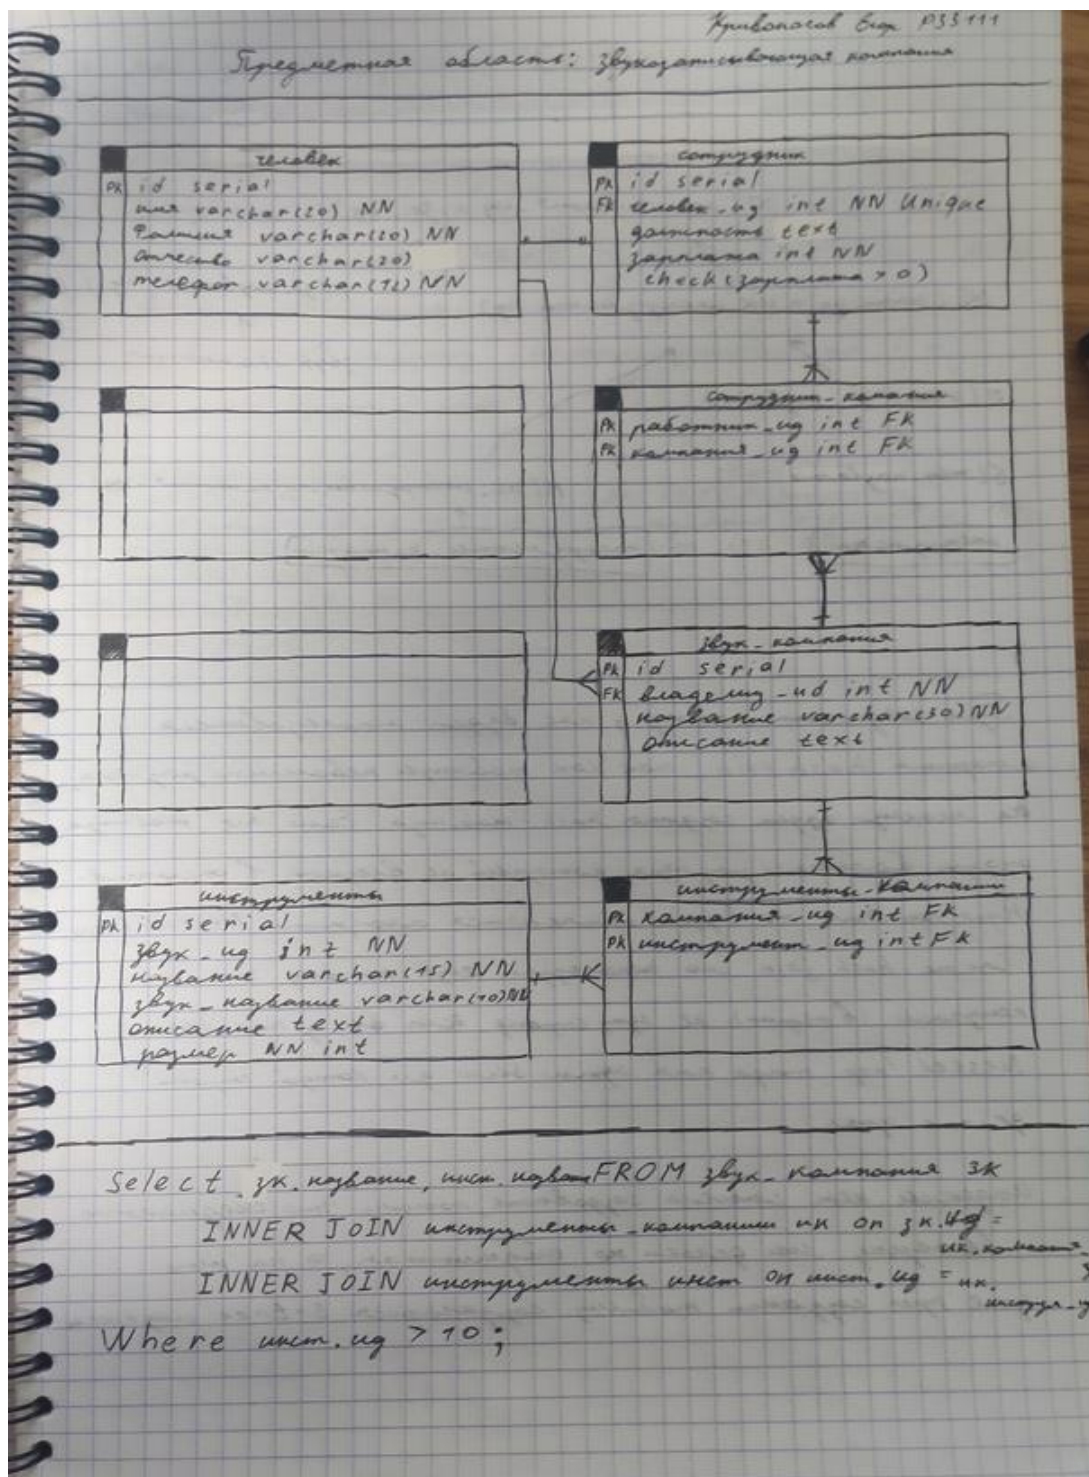 Кривоносов Егор P33111
Предметная область: звукозаписывающая компания
человек
PK id serial
имя varchar(20) NN
Фамилия varchar(20) NN
Отчество varchar(20)
телефон varchar(12) NN
сотрудник
PK id serial
FK человек_ид int NN Unique
должность text
зарплата int NN
check(зарплата > 0)
сотрудник_компания
PK работник_ид int FK
PK компания_ид int FK
звук_компания
PK id serial
FK владелец_ид int NN
название varchar(30) NN
описание text
инструменты
PK id serial
звук_ид int NN
название varchar(15) NN
звук_название varchar(10) NN
описание text
размер NN int
инструменты_компании
PK компания_ид int FK
PK инструмент_ид int FK
Select зк.название, инст. FROM звук_компания зк
INNER JOIN инструменты_компании ик on зк.ид =
ик.компания
INNER JOIN инструменты инст on инст.ид = ик.
Where инст.ид > 10;